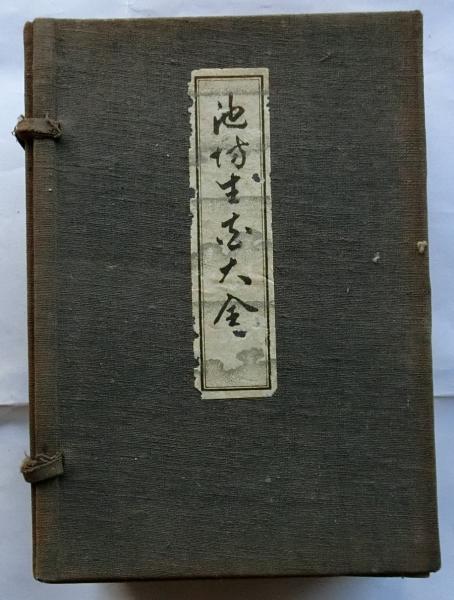 池坊生花大全